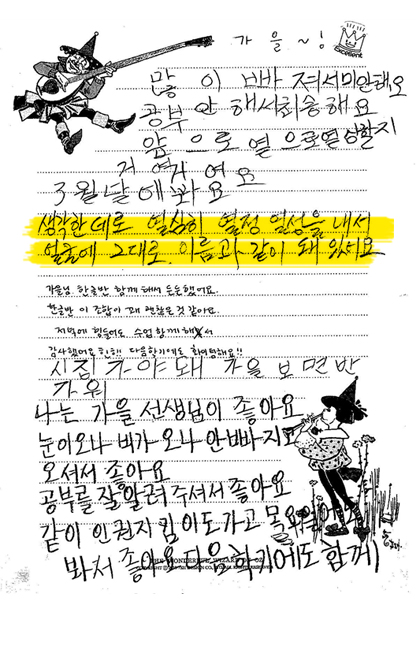 가을~!
excellent
많이 빠져서 미안해요
공부 안 해서 죄송해요
앞으로 열으로 열심할지
저 여기 여요
3월 날에 봐요
생각한대로 열심히 열정 열성을 내서
얼굴에 그대로 이름과 같이 돼 있어요
가을님 한글반 함께 해서 든든했어요.
한글반 이 조합이 꽤 괜찮은 것 같아요.
저녁에 힘들어도 수업 함께 해서
감사했어요 히히! 다음학기에도 화이팅해요!!
시집 가야 돼 가을 보면 반
가워
나는 가을 선생님이 좋아요
눈이 오나 비가 오나 안 빠지고
오셔서 좋아요
공부를 잘 알려 주셔서 좋아요
같이 인권지킴이도 가고 목요일
봐서 좋아요 다음 학기에도 함께